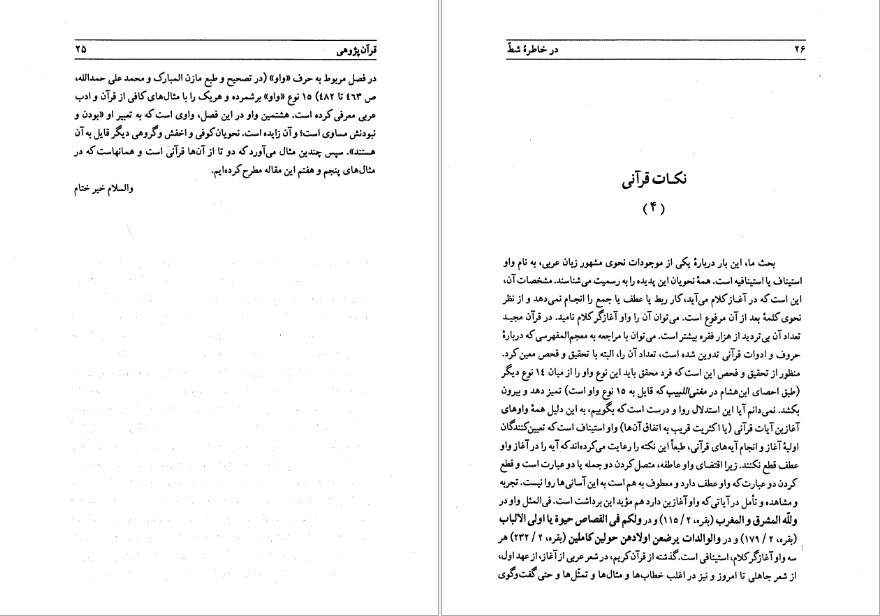 قرآن‌پژوهی ۲۵
در فصل مربوط به حرف «واو» (در تصحیح و طبع مازن المبارک و محمد علی حمدالله،
ص ۴۶۳ تا ۴۸۲) ۱۵ نوع «واو» برشمرده و هریک را با مثال‌های کافی از قرآن و ادب
عربی معرفی کرده است. هشتمین واو در این فصل، واوی است که به تعبیر او «بودن و
نبودنش مساوی است؛ و آن زایده است. نحویان کوفی و اخفش و گروهی دیگر قایل به آن
هستند». سپس چندین مثال می‌آورد که دو تا از آن‌ها قرآنی است و همانهاست که در
مثال‌های پنجم و هفتم این مقاله مطرح کرده‌ایم.
والسلام خیر ختام
۲۶ در خاطرهٔ شطّ
نکات قرآنی
(۴)
بحث ما، این بار دربارهٔ یکی از موجودات نحوی مشهور زبان عربی، به نام واو
استیناف یا استینافیه است. همهٔ نحویان این پدیده را به رسمیت می‌شناسند. مشخصات آن،
این است که در آغاز کلام می‌آید، کار ربط یا عطف یا جمع را انجام نمی‌دهد و از نظر
نحوی کلمهٔ بعد از آن مرفوع است. می‌توان آن را واو آغازگر کلام نامید. در قرآن مجید
تعداد آن بی‌تردید از هزار فقره بیشتر است. می‌توان با مراجعه به معجم‌المفهرسی که دربارهٔ
حروف و ادوات قرآنی تدوین شده است، تعداد آن را، البته با تحقیق و فحص معین کرد.
منظور از تحقیق و فحص این است که فرد محقق باید این نوع واو را از میان ۱۴ نوع دیگر
(طبق احصای ابن‌هشام در مغنی‌اللبیب که قایل به ۱۵ نوع واو است) تمیز دهد و بیرون
بکشد. نمی‌دانم آیا این استدلال روا و درست است که بگوییم، به این دلیل همهٔ واوهای
آغازین آیات قرآنی (یا اکثریت قریب به اتفاق آن‌ها) واو استیناف است که تعیین‌کنندگان
اولیهٔ آغاز و انجام آیه‌های قرآنی، طبعاً این نکته را رعایت می‌کرده‌اند که آیه را در آغاز واو
عطف قطع نکنند. زیرا اقتضای واو عاطفه، متصل کردن دو جمله یا دو عبارت است و قطع
کردن دو عبارت که واو عطف دارد و معطوف به هم است به این آسانی‌ها روا نیست. تجربه
و مشاهده و تأمل در آیاتی که واو آغازین دارد هم مؤید این برداشت است. فی‌المثل واو در
ولله المشرق و المغرب (بقره، ۲ / ۱۱۵) و در ولکم فی القصاص حیوة یا اولی الالباب
(بقره، ۲ / ۱۷۹) و در والوالدات یرضعن اولادهن حولین کاملین (بقره، ۲ / ۲۳۲) هر
سه واو آغازگر کلام، استینافی است. گذشته از قرآن کریم، در شعر عربی از آغاز، از عهد اول،
از شعر جاهلی تا امروز و نیز در اغلب خطاب‌ها و مثال‌ها و تمثّل‌ها و حتی گفت‌وگوی